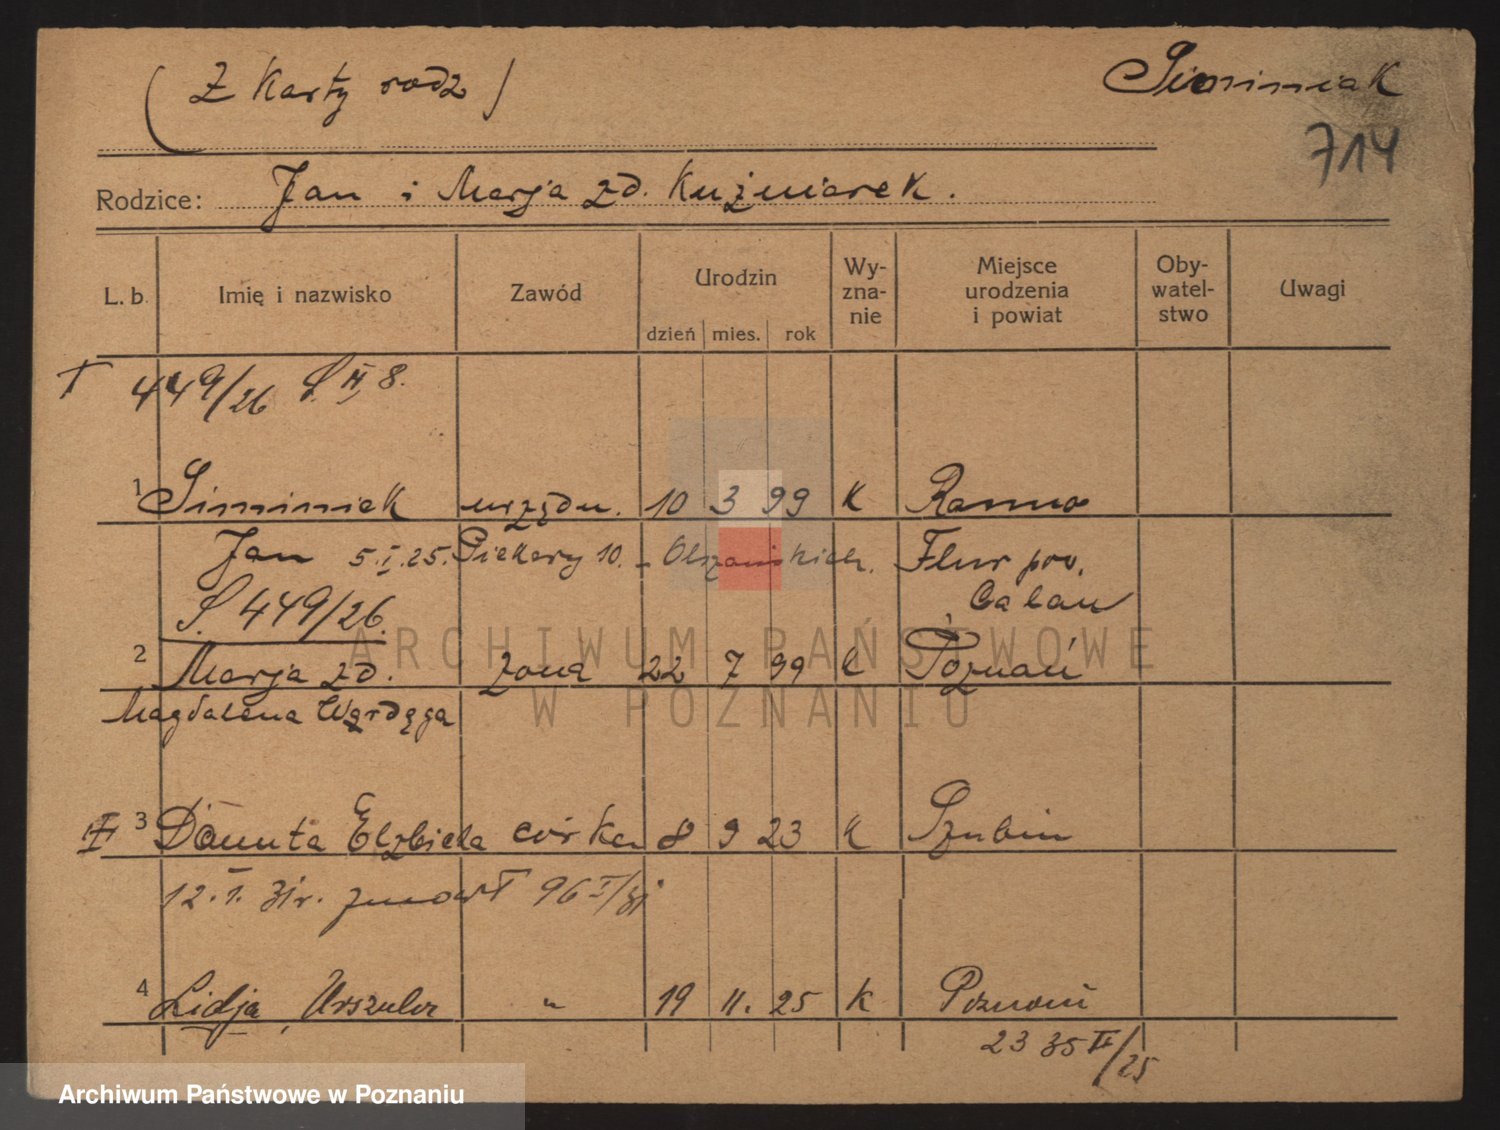 ( Z Karty rodz )
Siminiak
714
Rodzice: Jan i Marja zd. Kuźniarek.
L. b. Imię i nazwisko Zawód Urodzin dzień mies. rok Wy-zna-nie Miejsce urodzenia i powiat Oby-watel-stwo Uwagi
† 449/26 S. II 8.
1 Siminiak urzędn. 10 3 99 K Ranno
Jan 5.I.25. Piekary 10. Flur pow.
S. 449/26 Calau
2 Marja zd. żona 22 7 99 k Poznań
Magdalena
ARCHIWUM PAŃSTWOWE
W POZNANIU
3 Danuta Elżbieta córka 8 9 23 k Szubin
12.1. 31r. 96 I/31
4 Lidja Urszula " 19 11. 25 k Poznań
23 35 II/25
Archiwum Państwowe w Poznaniu